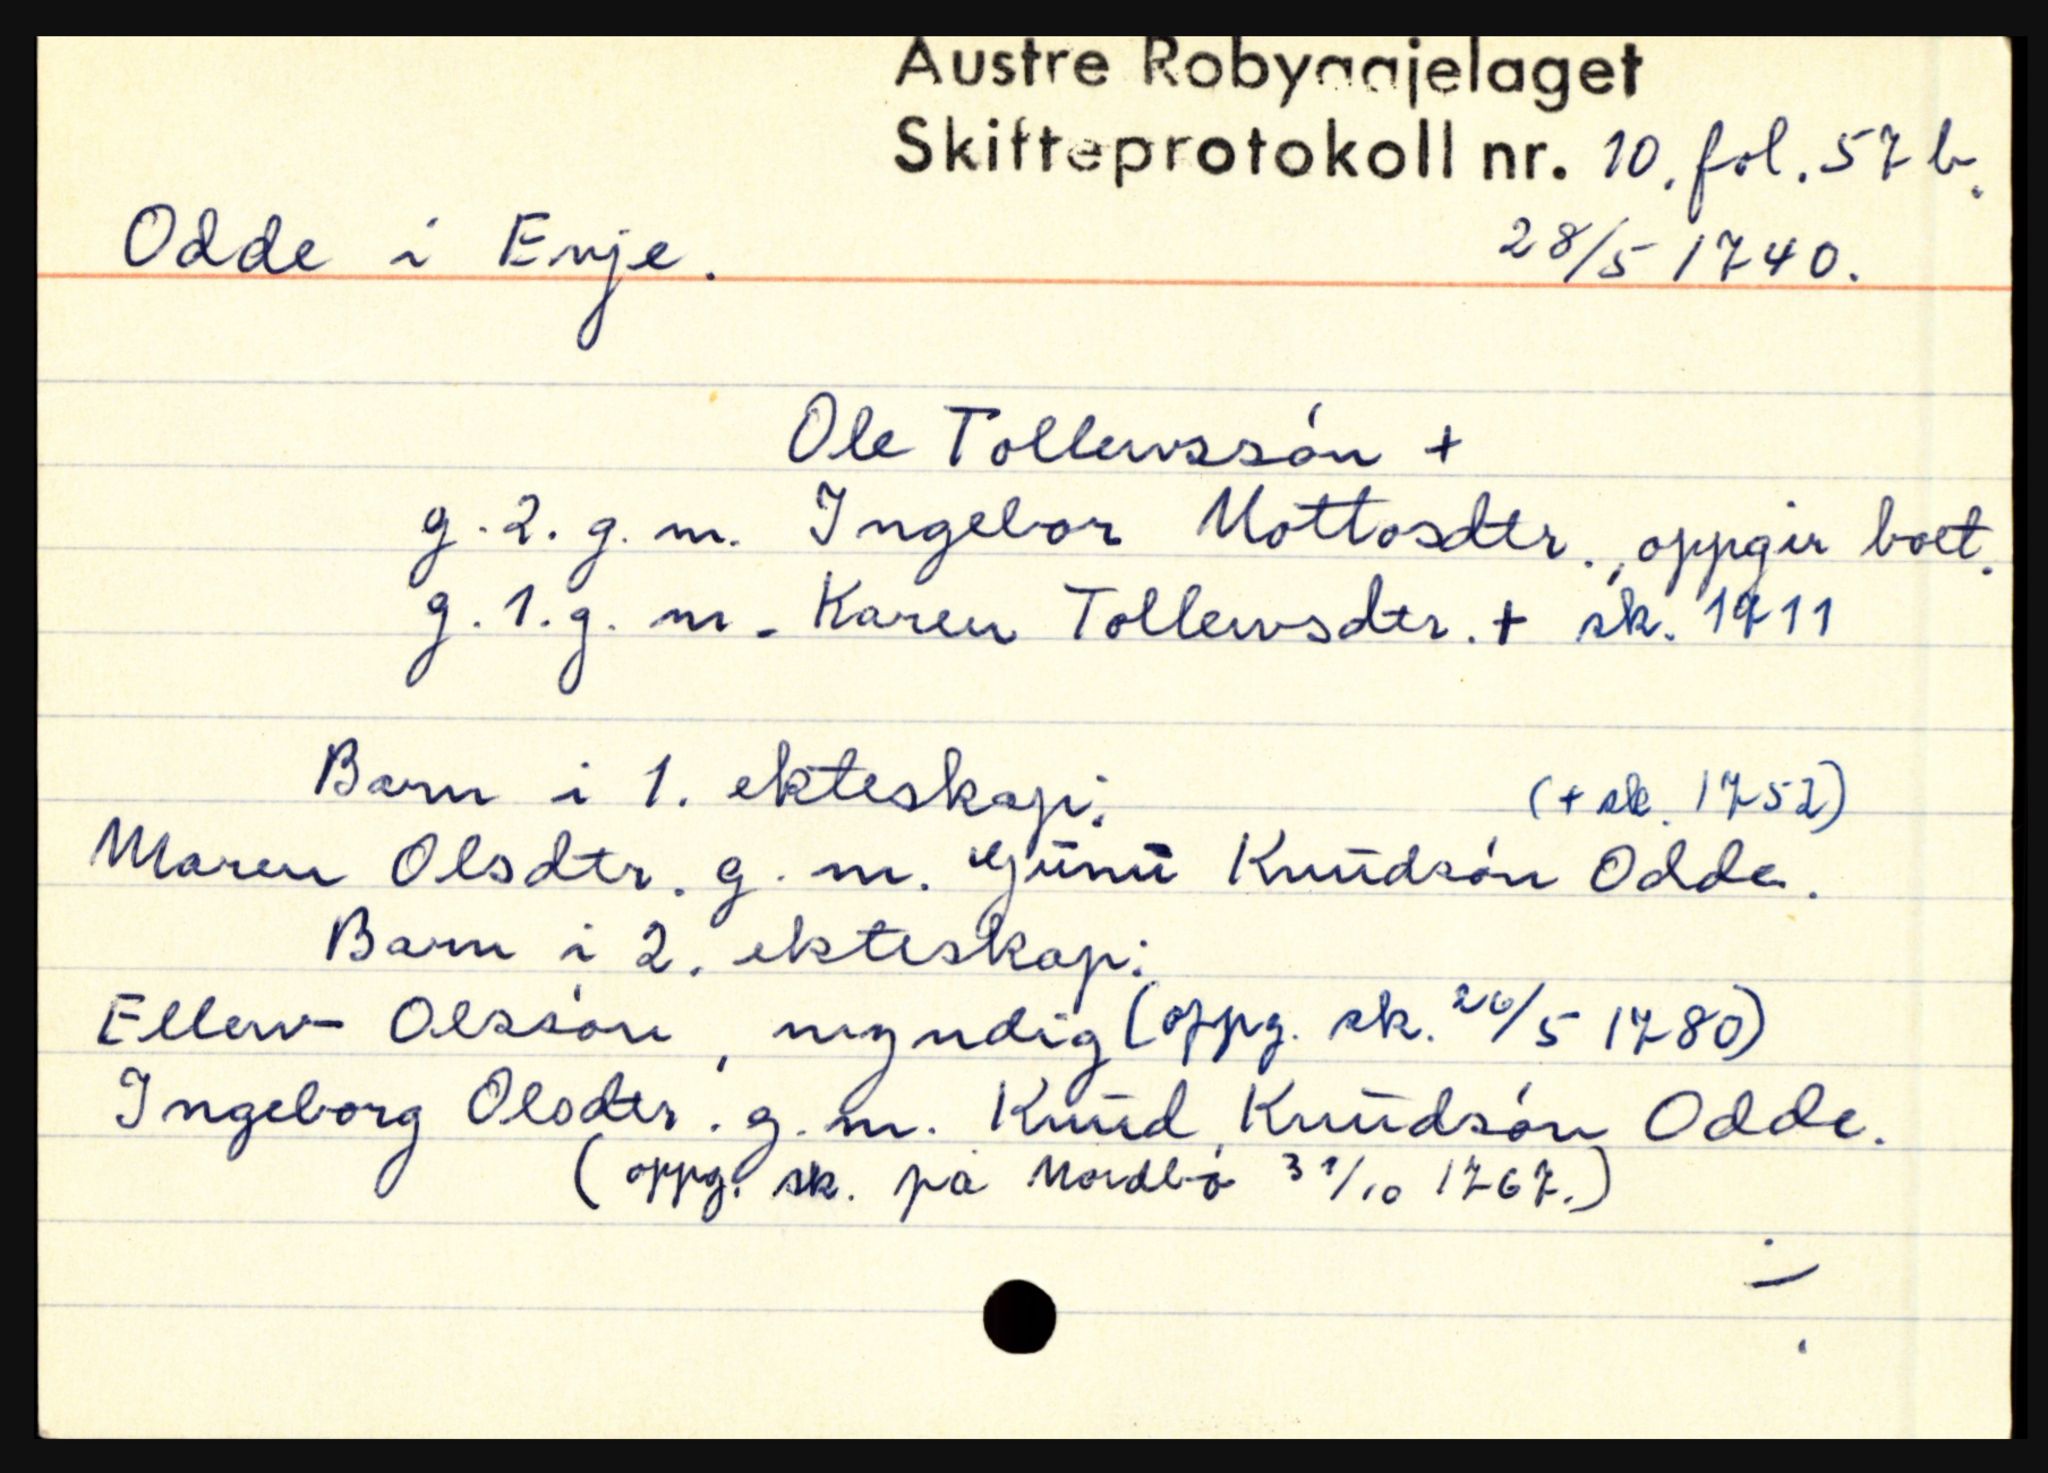 Austre Robyggjelaget
Skifteprotokoll nr. 10. fol. 57 b.
Odde i Evje. 28/5 1740.
Ole Tollevssón +
g. 2. g. m. Ingebor Mottosdtr., oppgir boet.
g. 1. g. m. Karen Tollevsdtr. + sk. 1711
Barn i 1. ekteskap: (+ sk. 1752)
Maren Olsdtr. g. m. Gŭnŭ Knŭdsón Odde.
Barn i 2. ekteskap:
Ellev Olssón, myndig (oppg. sk. 26/5 1780)
Ingeborg Olsdtr. g. m. Knŭd Knŭdsón Odde.
(oppg. sk. på Nordbø 31/10 1767.)